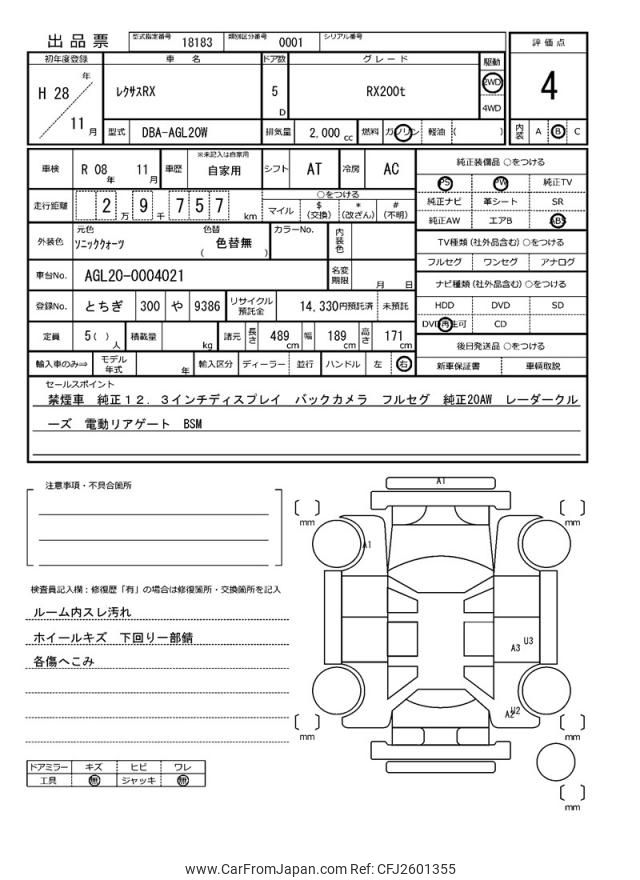 出品票 型式指定番号 18183 類別区分番号 0001 シリアル番号
評価点
初年度登録 車名 ドア数 グレード 駆動
H 28 年 11 月 レクサスRX 5 D RX200t 2WD 4WD
4
型式 DBA-AGL20W 排気量 2,000 cc 燃料 ガソリン 軽油 ( )
内装 A B C
車検 R 08 年 11 月 車歴 ※未記入は自家用 自家用 シフト AT 冷房 AC
純正装備品 ○をつける
PS PW 純正TV
純正ナビ 革シート SR
純正AW エアB ABS
走行距離 2 万 9 千 7 5 7 km
○をつける
マイル $ (交換) * (改ざん) # (不明)
外装色 元色 ソニッククォーツ 色替 ( 色替無 ) カラーNo. 内装色
TV種類 (社外品含む) ○をつける
フルセグ ワンセグ アナログ
車台No. AGL20-0004021 名変期限 月 日
ナビ種類 (社外品含む) ○をつける
HDD DVD SD
DVD再生可 CD
登録No. とちぎ 300 や 9386 リサイクル預託金 14,330円預託済 未預託
定員 5 ( ) 人 積載量 kg 諸元 長さ 489 cm 幅 189 cm 高さ 171 cm
後日発送品 ○をつける
新車保証書 車輌取説
輸入車のみ⇒ モデル年式 年 輸入区分 ディーラー 並行 ハンドル 左 右
セールスポイント
禁煙車 純正12.3インチディスプレイ バックカメラ フルセグ 純正20AW レーダークル
ーズ 電動リアゲート BSM
注意事項・不具合箇所
検査員記入欄:修復歴「有」の場合は修復箇所・交換箇所を記入
ルーム内スレ汚れ
ホイールキズ 下回り一部錆
各傷へこみ
ドアミラー キズ ヒビ ワレ
工具 無 ジャッキ 無
A1
mm mm
A1
A3 U3
A2 U2
mm mm
mm
www.CarFromJapan.com Ref: CFJ2601355